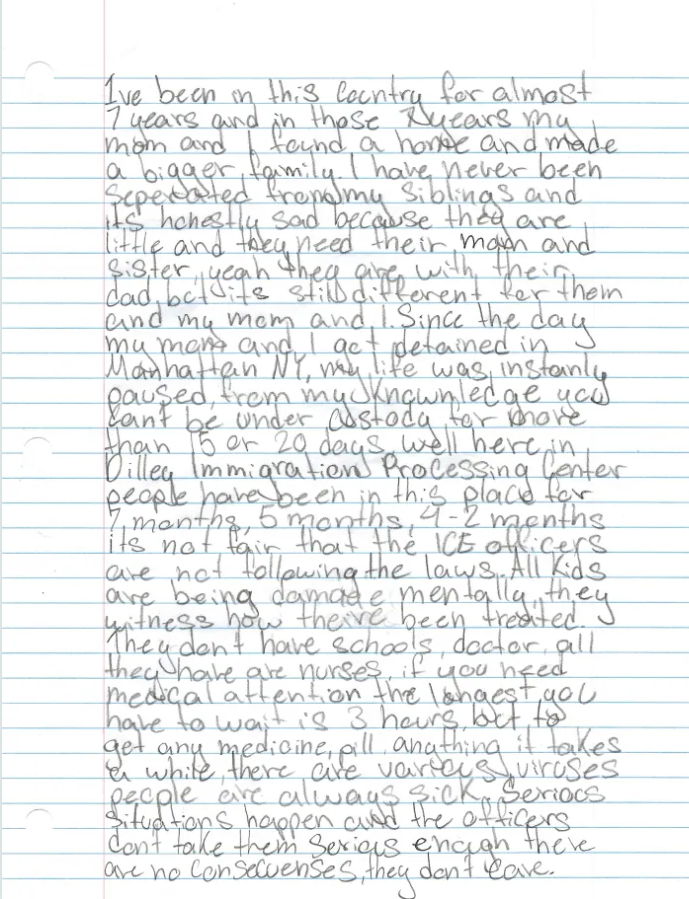 Ive been in this Country for almost
7 years and in those years my
mom and I found a home and made
a bigger family. I have never been
seperated from my siblings and
its honestly sad because they are
little and they need their mom and
sister, yeah they are with their
dad, but its still different for them
and my mom and I. Since the day
my mom and I got detained in
Manhattan NY, my life was instanly
paused, from my knownledge you
cant be under custody for more
than 15 or 20 days well here in
Dilley Immigration Processing Center
people have been in this place for
7 months, 5 months, 4-2 months
its not fair that the ICE officers
are not following the laws. All Kids
are being damage mentally, they
witness how theire been treated.
They don't have schools, doctor, all
they have are nurses, if you need
medical attention the longest you
have to wait is 3 hours, but to
get any medicine, pill, anything it takes
a while, there are various viruses
people are always sick. Serious
situations happen and the officers
dont take them serious enough there
are no consecuenses, they don't care.